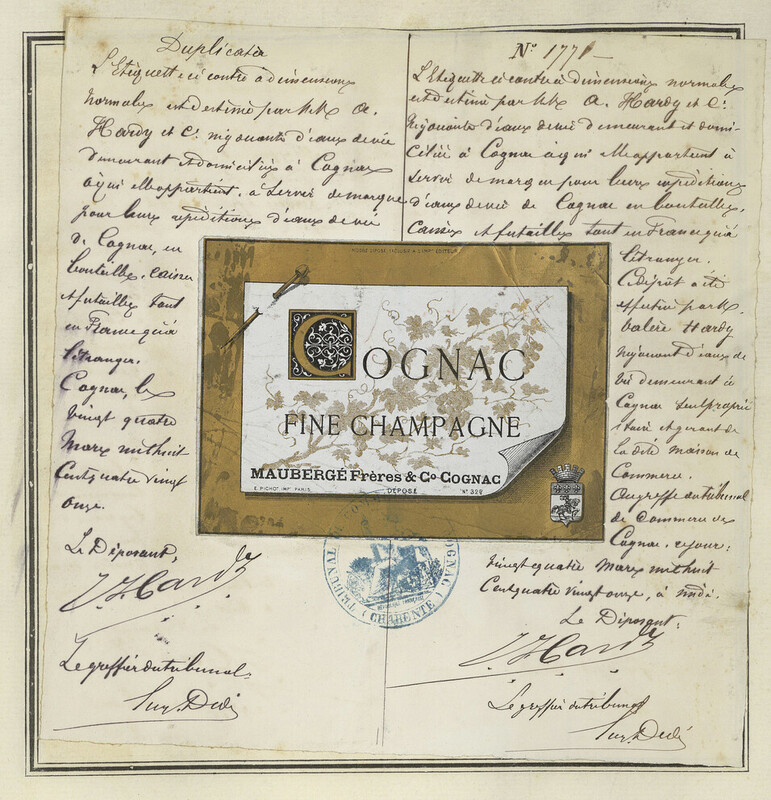 Duplicata
L'Etiquette ci contre à dimensions
normales est destiné par MM A.
Hardy et Cie négociants d'eaux de vie
demeurant et domiciliés à Cognac
à qui elle appartient, à servir de marque
pour leurs expéditions d'eaux de vie
de Cognac, en
bouteilles, caisses
et futailles tant
en France qu'à
l'étranger.
Cognac, le
vingt quatre
Mars mil huit
Cent quatre vingt
onze.
Le Déposant,
Hardy
Le greffier du tribunal
No 1771
L'Etiquette ci contre à dimensions normales
est destiné par MM A. Hardy et Cie
négociants d'eaux de vie demeurant et domi-
ciliés à Cognac à qui elle appartient à
servir de marque pour leurs expéditions
d'eaux de vie de Cognac en bouteilles,
caisses et futailles tant en France qu'à
l'étranger.
Ce dépôt a été
effectué par M.
Valère Hardy
négociant d'eaux de
vie demeurant à
Cognac seul proprié
taire et gérant de
la dite maison de
Commerce.
Au greffe du tribunal
de Commerce de
Cognac, ce jour:
vingt quatre Mars mil huit
Cent quatre vingt onze, à midi.
Le Déposant:
Hardy
Le greffier du tribunal
COGNAC
FINE CHAMPAGNE
MAUBERGÉ Frères & Co COGNAC
E. PICHOT, IMP. PARIS
DÉPOSÉ
No 322
TRIBUNAL DE COGNAC (CHARENTE)